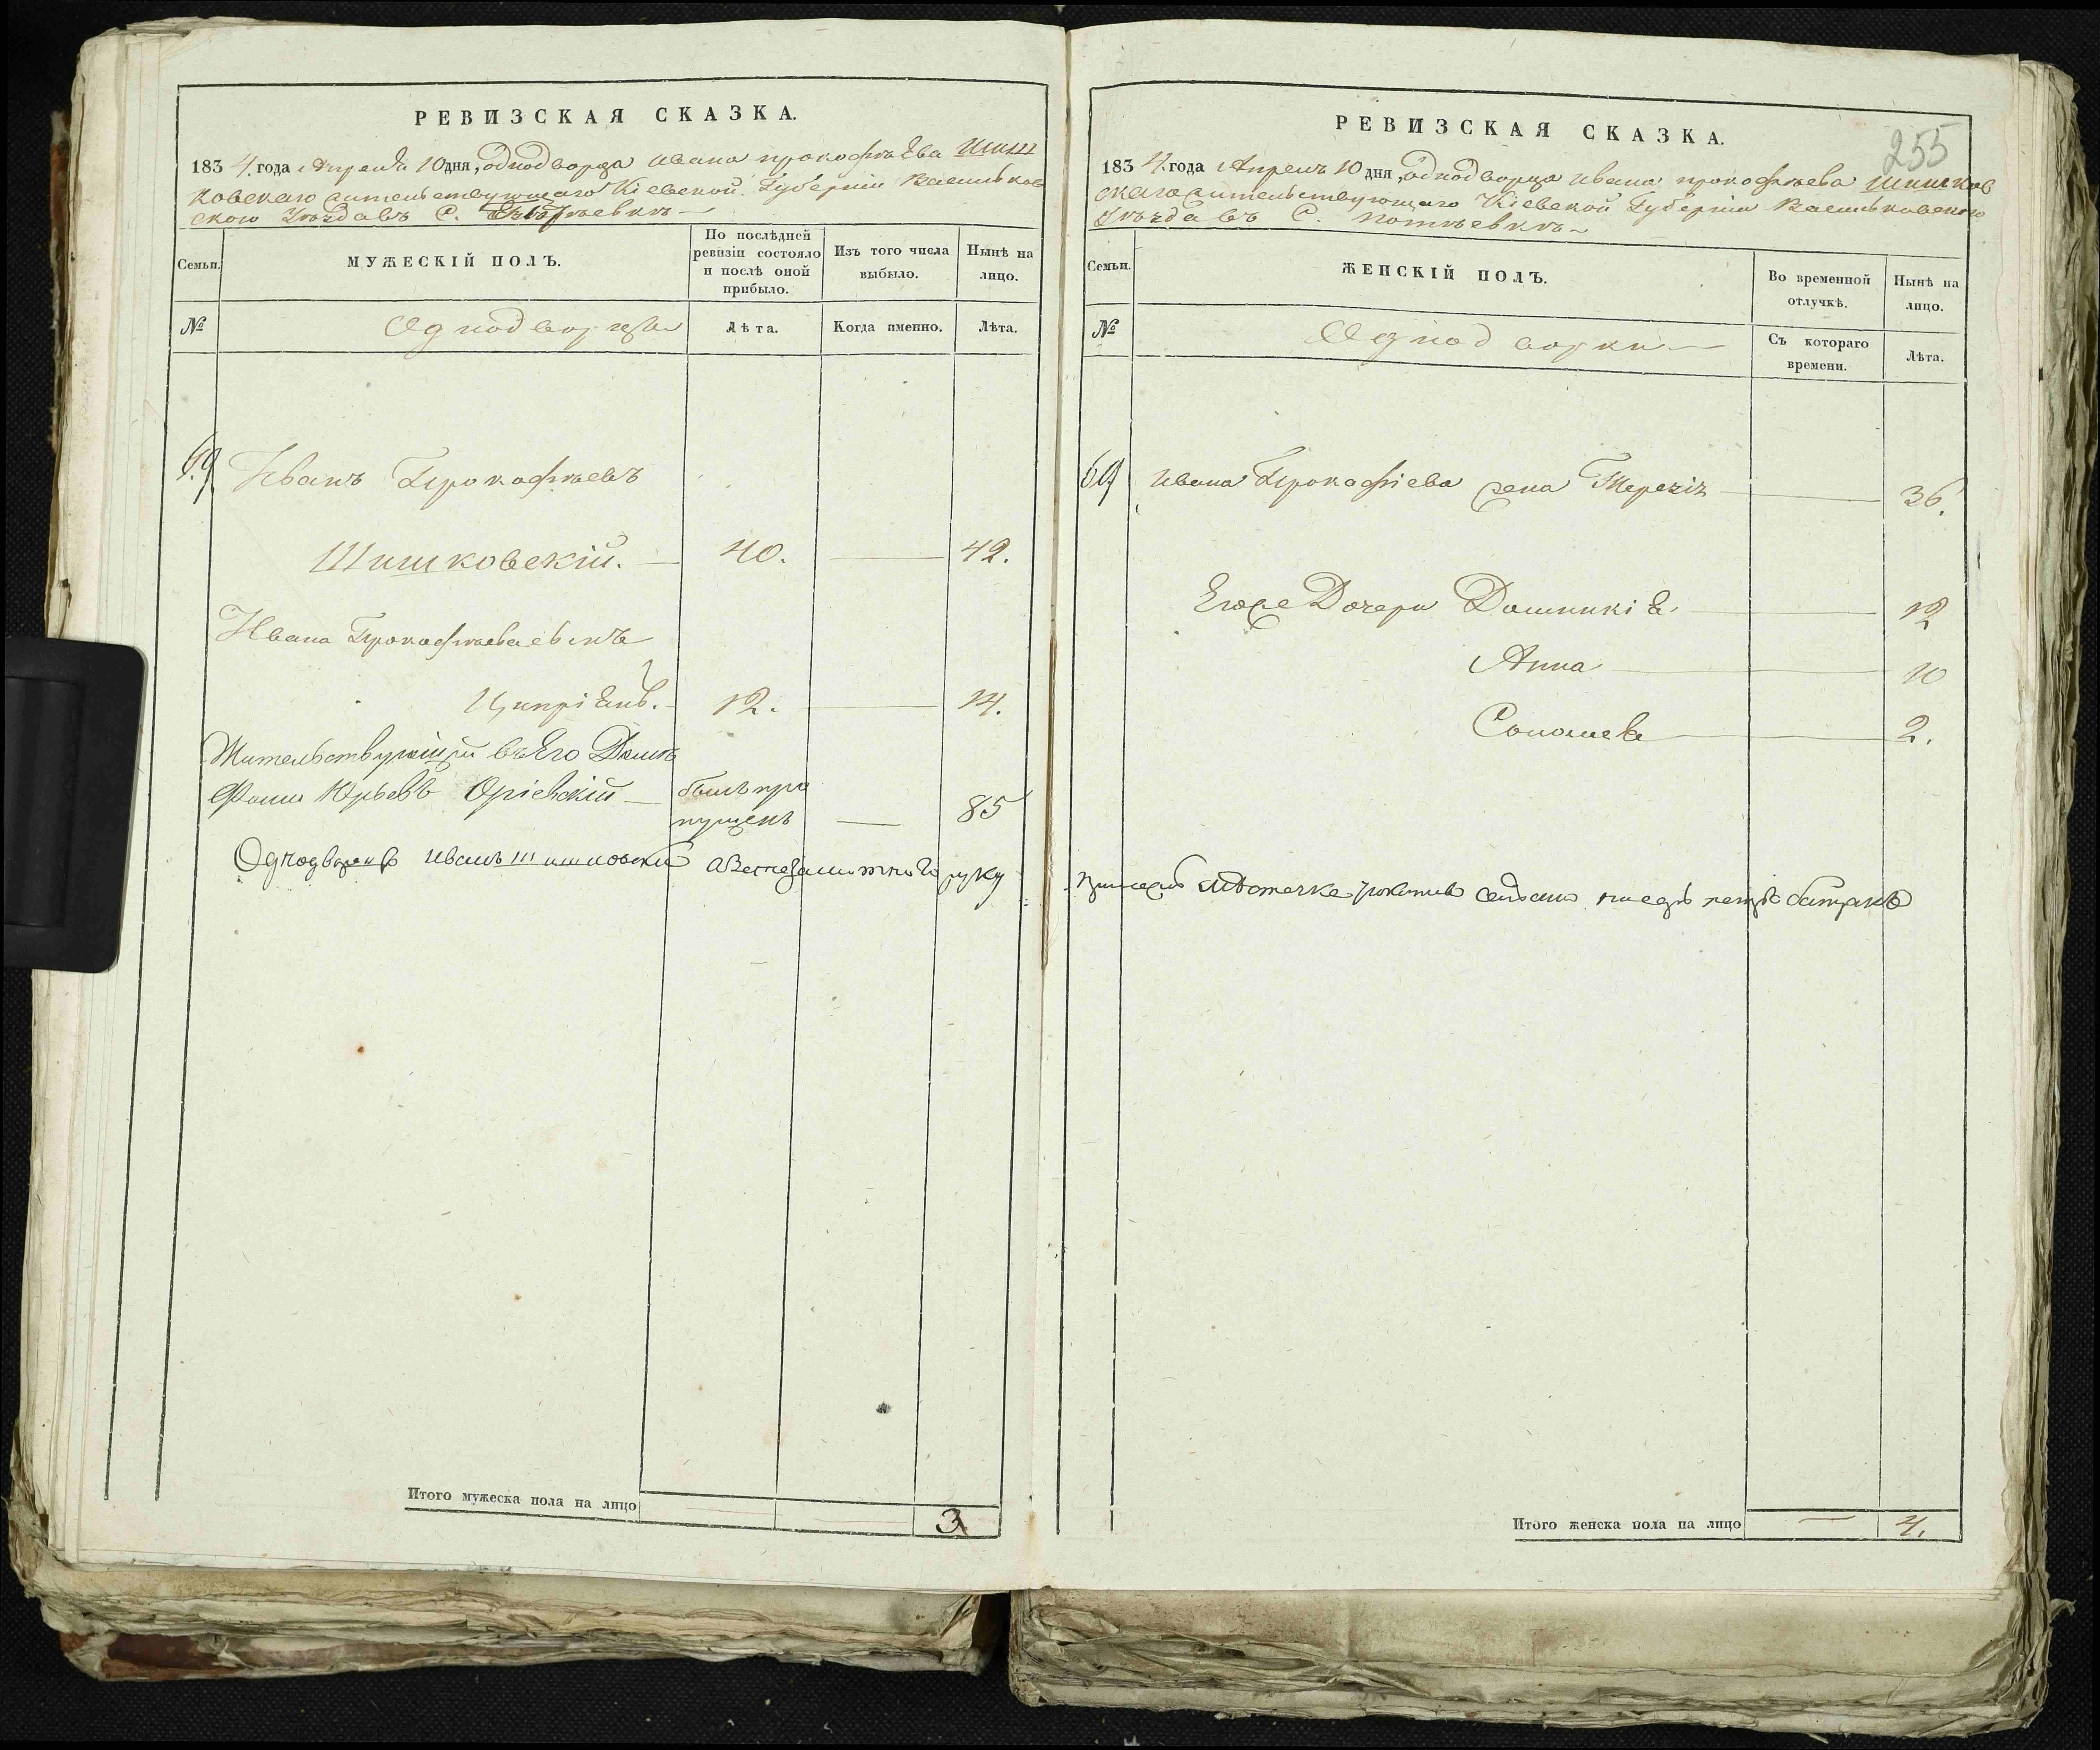 РЕВИЗСКАЯ СКАЗКА.
1834. года Апреля 10 дня, однодворца Ивана Прокофъева Шиш
ковскаго жительствующаго Кіевской Губерніи Васильков
скаго Уѣзда въ С.
Семьи.
МУЖЕСКІЙ ПОЛЪ.
По послѣдней ревизіи состояло и послѣ оной прибыло.
Изъ того числа выбыло.
Нынѣ на лицо.
№
Однодворцы
Лѣта.
Когда именно.
Лѣта.
69
Иванъ Прокофъевъ
Шишковскій. 40. — 42.
Ивана Прокофъева сынъ
Ципріянъ. 12. — 14.
Жительствующій въ Его Домѣ
Фома Юрьевъ Оріевскій — былъ про
пущенъ — 85
Однодворецъ Иванъ Шишковскій а вместо руку
Итого мужеска пола на лицо 3
РЕВИЗСКАЯ СКАЗКА.
255
1834. года Апреля 10 дня, однодворца Ивана Прокофъева Шишков
скаго жительствующаго Кіевской Губерніи Васильковскаго
Уѣзда въ С. Потѣевкѣ
Семьи.
ЖЕНСКІЙ ПОЛЪ.
Во временной отлучкѣ.
Нынѣ на лицо.
№
Однодворки
Съ котораго времени.
Лѣта.
69
Ивана Прокофіева жена Терезія — 36.
Егоже Дочери Доминикія — 12
Анна — 10
Соломея — 2.
Итого женска пола на лицо — 4.